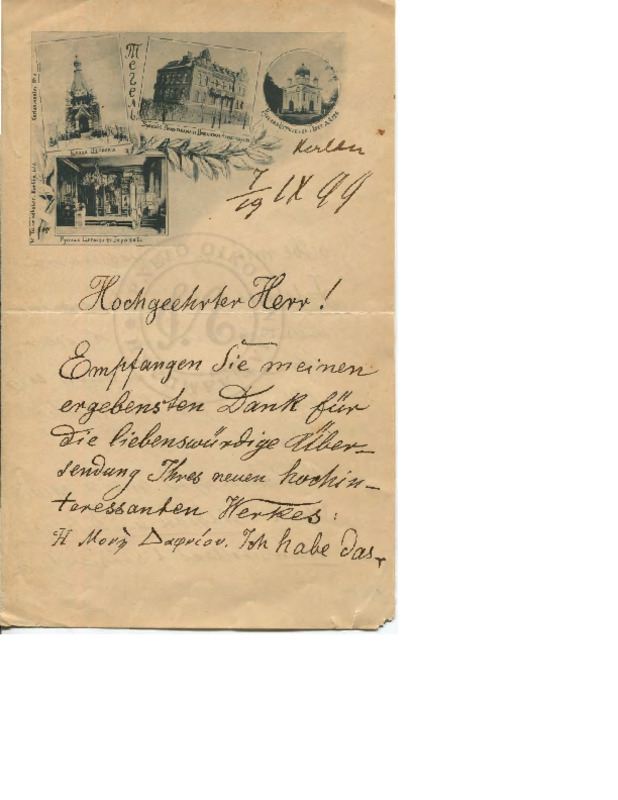 Тегель
Berlin
7/19 IX 99
Hochgeehrter Herr!
Empfangen Sie meinen
ergebensten Dank für
die liebenswürdige Über-
sendung Ihres neuen hochin-
teressanten Werkes:
Η Μονὴ Δαφνίου. Ich habe das-